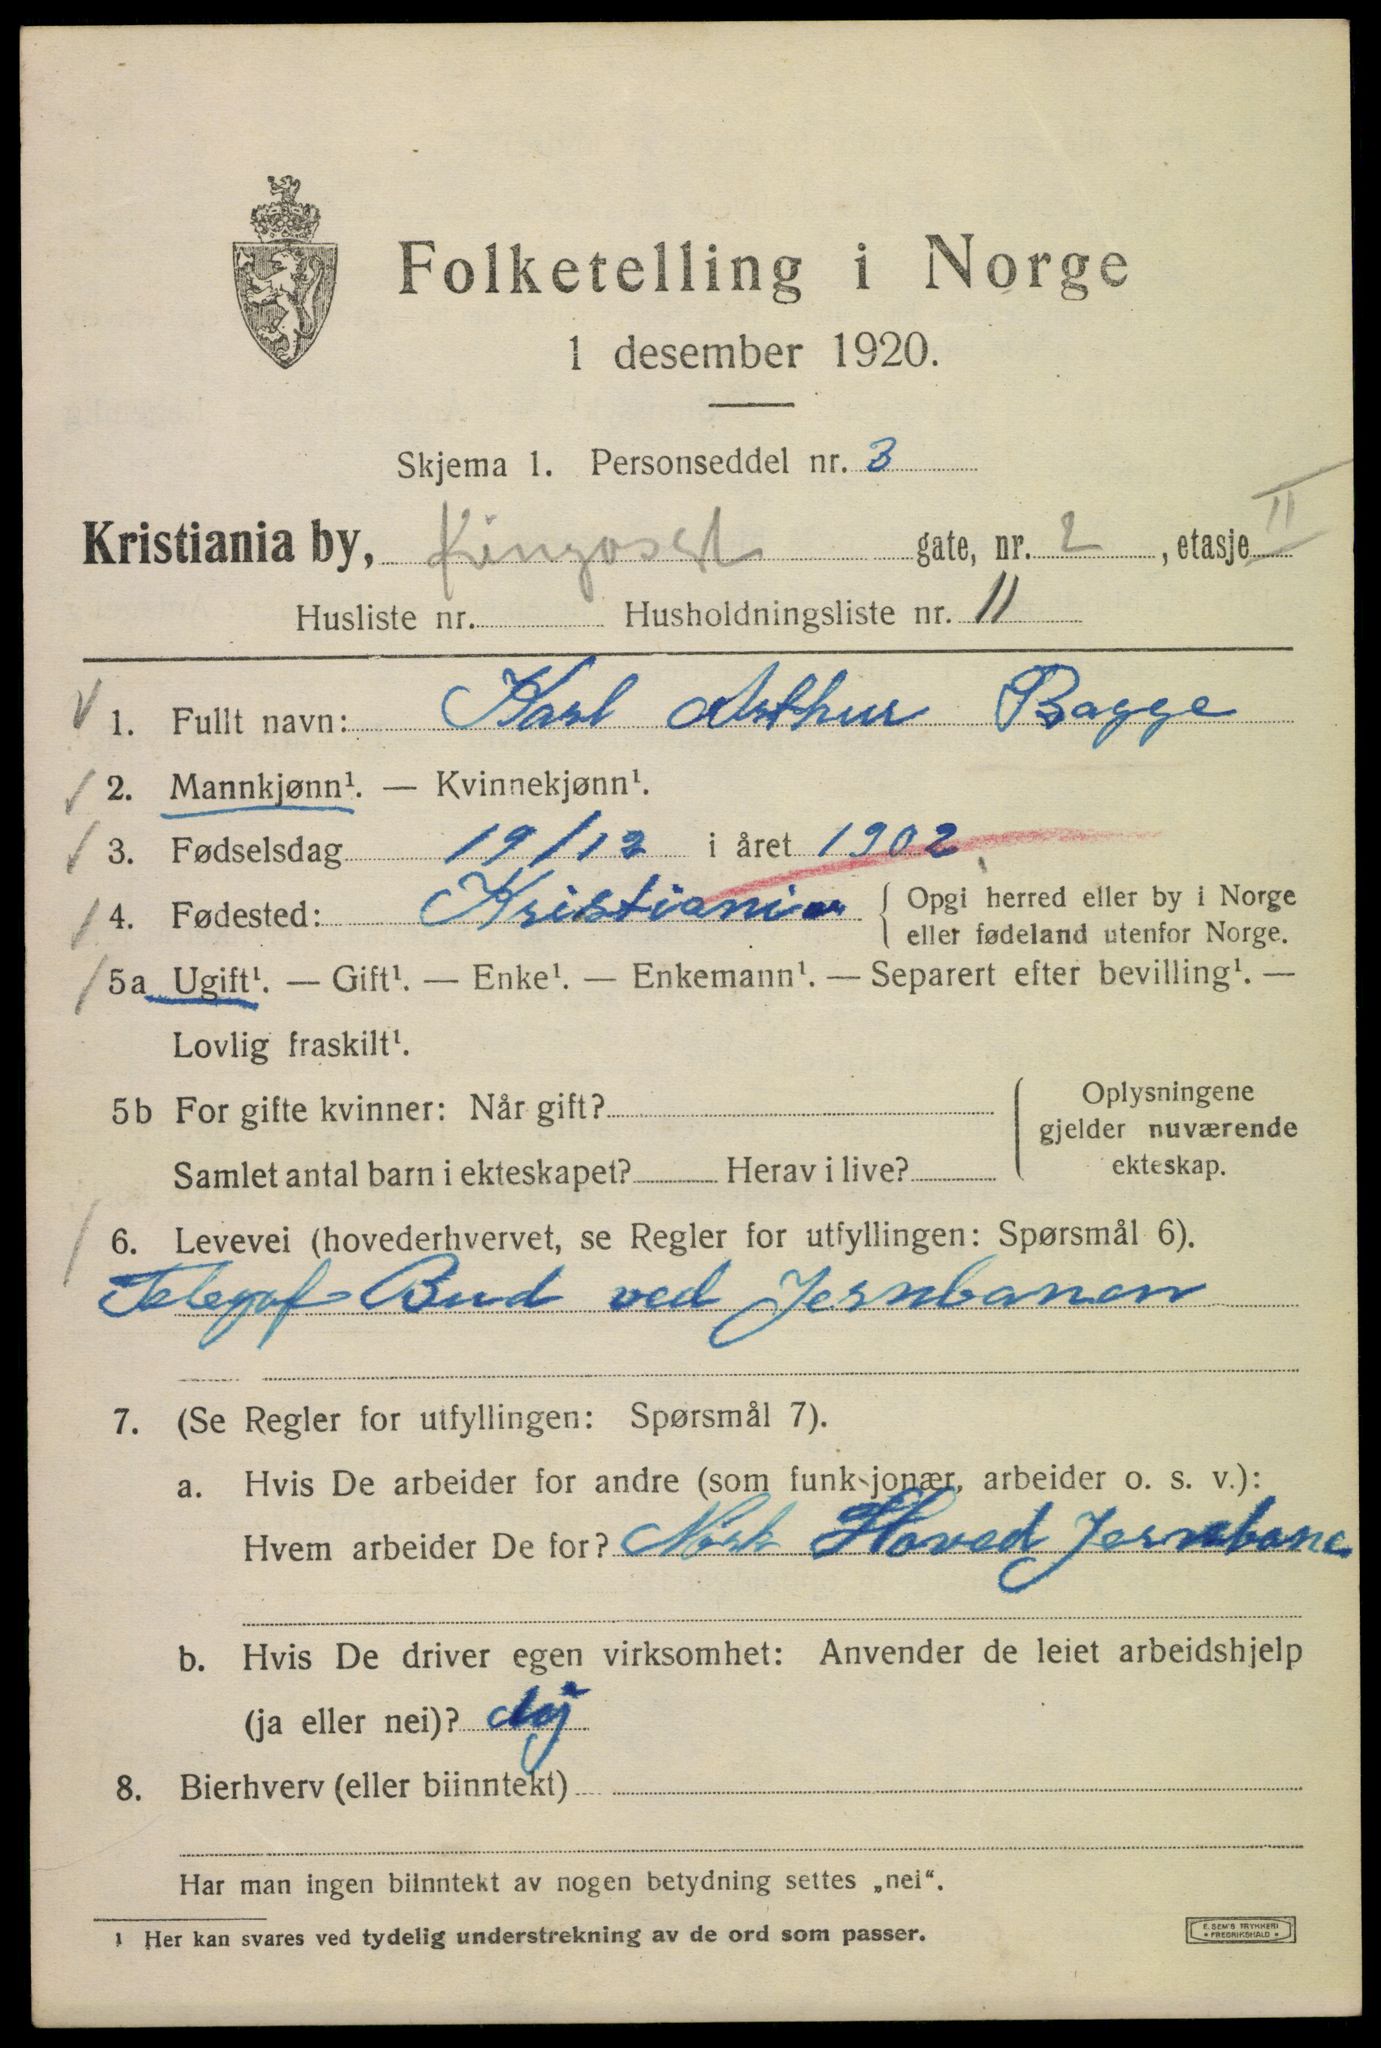 Folketelling i Norge
1 desember 1920.
Skjema 1. Personseddel nr. 3
Kristiania by, gate, nr. 2, etasje II
Husliste nr. Husholdningsliste nr. 11
1. Fullt navn: Karl Arthur Bagge
2. Mannkjønn¹. — Kvinnekjønn¹.
3. Fødselsdag 19/12 i året 1902
4. Fødested: Kristiania { Opgi herred eller by i Norge
eller fødeland utenfor Norge.
5a Ugift¹. — Gift¹. — Enke¹. — Enkemann¹. — Separert efter bevilling¹. —
Lovlig fraskilt¹.
5b For gifte kvinner: Når gift? Oplysningene
gjelder nuværende
Samlet antal barn i ekteskapet? Herav i live? ekteskap.
6. Levevei (hovederhvervet, se Regler for utfyllingen: Spørsmål 6).
Telegaf Bud ved Jernbanen
7. (Se Regler for utfyllingen: Spørsmål 7).
a. Hvis De arbeider for andre (som funksjonær, arbeider o. s. v.):
Hvem arbeider De for? Norsk Hoved Jernbane
b. Hvis De driver egen virksomhet: Anvender de leiet arbeidshjelp
(ja eller nei)? Nej
8. Bierhverv (eller biinntekt)
Har man ingen biinntekt av nogen betydning settes „nei“.
¹ Her kan svares ved tydelig understrekning av de ord som passer.
E. SEM'S TRYKKERI
• FREDRIKSHALD •